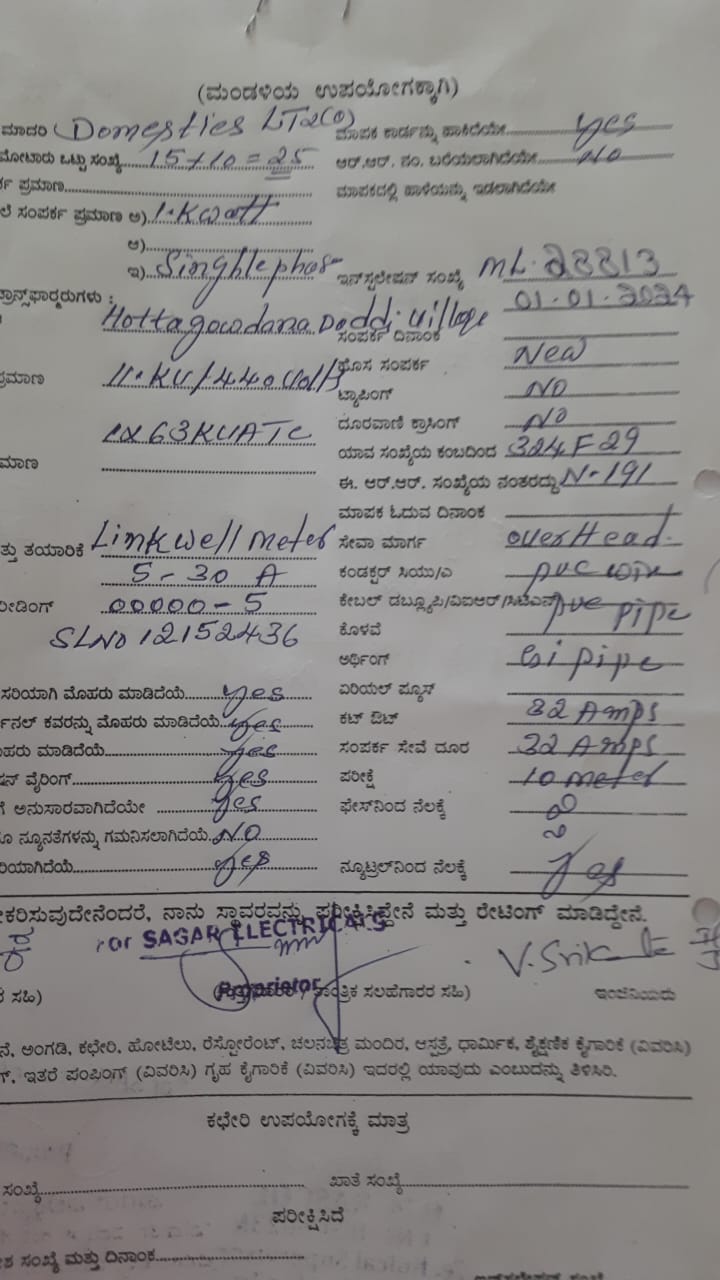 (ಮಂಡಳಿಯ ಉಪಯೋಗಕ್ಕಾಗಿ)
ಮಾದರಿ Domesties LT2(a) ಮಾಪಕ ಕಾರ್ಡನ್ನು ಹಾಕಿದೆಯೇ yes
ಮೋಟಾರು ಒಟ್ಟು ಸಂಖ್ಯೆ 15+10=25 ಆರ್.ಆರ್. ನಂ. ಬರೆಯಲಾಗಿದೆಯೇ NO
ಪ್ರಮಾಣ ಮಾಪಕದಲ್ಲಿ ಹಾಳೆಯನ್ನು ಇಡಲಾಗಿದೆಯೇ
ಸಂಪರ್ಕ ಪ್ರಮಾಣ ಅ) 1.Kwatt
ಆ)
ಇ) Singhlephase ಇನ್‌ಸ್ಟಲೇಷನ್ ಸಂಖ್ಯೆ ML.28813
ಟ್ರಾನ್ಸ್‌ಫಾರ್ಮರುಗಳು : 01.01.2024
Hottagowdana Doddi village ಸಂಪರ್ಕ ದಿನಾಂಕ
ಪ್ರಮಾಣ 11.KV/440Volts ಹೊಸ ಸಂಪರ್ಕ New
ಟ್ಯಾಪಿಂಗ್ NO
1X63KVATC ದೂರವಾಣಿ ಕ್ರಾಸಿಂಗ್ NO
ಯಾವ ಸಂಖ್ಯೆಯ ಕಂಬದಿಂದ 324F29
ಈ. ಆರ್.ಆರ್. ಸಂಖ್ಯೆಯ ನಂತರದ್ದು N-191
ಮಾಪಕ ಓದುವ ದಿನಾಂಕ
ತಯಾರಿಕೆ Linkwell meter ಸೇವಾ ಮಾರ್ಗ overHead
5-30 A ಕಂಡಕ್ಟರ್ ಸಿಯು/ಎ pvc wire
ರೀಡಿಂಗ್ 00000-5 ಕೇಬಲ್ ಡಬ್ಲ್ಯೂಪಿ/ವಿಐಆರ್/ಸಿಟಿಎಸ್
SLNO 12152436 ಕೊಳವೆ pvc pipe
ಅರ್ಥಿಂಗ್ Gi pipe
ಸರಿಯಾಗಿ ಮೊಹರು ಮಾಡಿದೆಯೆ yes ಏರಿಯಲ್ ಫ್ಯೂಸ್
ಕವರನ್ನು ಮೊಹರು ಮಾಡಿದೆಯೆ yes ಕಟ್ ಔಟ್ 32 Amps
ಮೊಹರು ಮಾಡಿದೆಯೇ yes ಸಂಪರ್ಕ ಸೇವೆ ದೂರ 32 Amps
ವೈರಿಂಗ್ yes ಪರೀಕ್ಷೆ 10 meter
ಅನುಸಾರವಾಗಿದೆಯೇ yes ಫೇಸ್‌ನಿಂದ ನೆಲಕ್ಕೆ
ನ್ಯೂನತೆಗಳನ್ನು ಗಮನಿಸಲಾಗಿದೆಯೆ NO
yes ನ್ಯೂಟ್ರಲ್‌ನಿಂದ ನೆಲಕ್ಕೆ yes
ನಾನು ಸ್ಥಾವರವನ್ನು ಪರೀಕ್ಷಿಸಿದ್ದೇನೆ ಮತ್ತು ರೇಟಿಂಗ್ ಮಾಡಿದ್ದೇನೆ.
For SAGAR ELECTRICALS V.Srikanta
ಸಹಿ) Proprietor ತಾಂತ್ರಿಕ ಸಲಹೆಗಾರರ ಸಹಿ) ಇಂಜಿನಿಯರು
ಅಂಗಡಿ, ಕಛೇರಿ, ಹೋಟೆಲು, ರೆಸ್ಟೋರೆಂಟ್, ಚಲನಚಿತ್ರ ಮಂದಿರ, ಆಸ್ಪತ್ರೆ, ಧಾರ್ಮಿಕ, ಶೈಕ್ಷಣಿಕ ಕೈಗಾರಿಕೆ (ವಿವರಿಸಿ)
ಇತರೆ ಪಂಪಿಂಗ್ (ವಿವರಿಸಿ) ಗೃಹ ಕೈಗಾರಿಕೆ (ವಿವರಿಸಿ) ಇದರಲ್ಲಿ ಯಾವುದು ಎಂಬುದನ್ನು ತಿಳಿಸಿರಿ.
ಕಛೇರಿ ಉಪಯೋಗಕ್ಕೆ ಮಾತ್ರ
ಸಂಖ್ಯೆ ಖಾತೆ ಸಂಖ್ಯೆ
ಪರೀಕ್ಷಿಸಿದೆ
ಸಂಖ್ಯೆ ಮತ್ತು ದಿನಾಂಕ